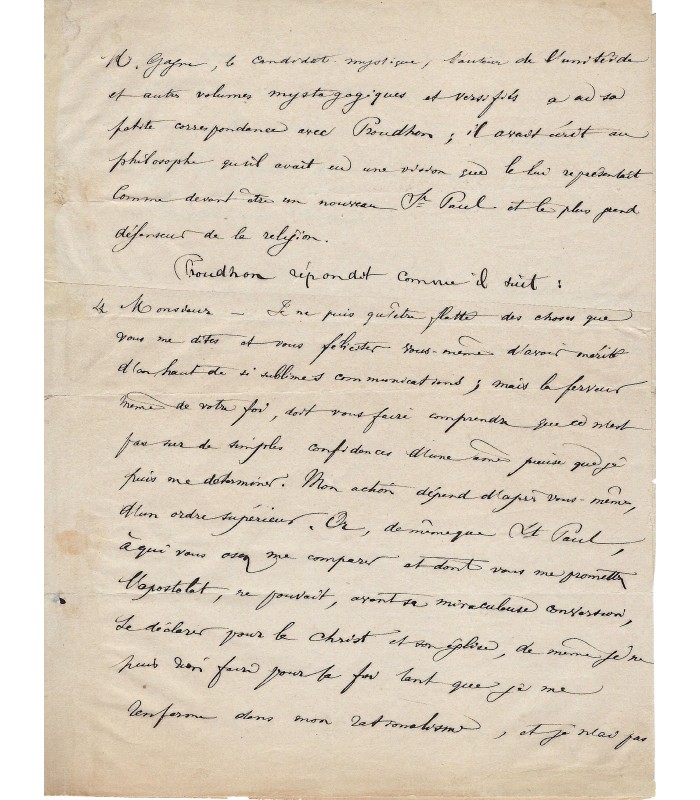 M. Gagne, le candidat mystique, l'auteur de l'unitéide
et autres volumes mystagogiques et versifiés a eu sa
petite correspondance avec Proudhon ; il avait écrit au
philosophe qu'il avait eu une vision que le lui représentait
comme devant être un nouveau St Paul et le plus grand
défenseur de la religion.
Proudhon répondit comme il suit :
Monsieur — Je ne puis qu'être flatté des choses que
vous me dites et vous féliciter vous-même d'avoir mérité
d'en haut de si sublimes communications ; mais la ferveur
même de votre foi, doit vous faire comprendre que ce n'est
pas sur de simples confidences d'une âme pieuse que je
puis me déterminer. Mon action dépend d'après vous-même,
d'un ordre supérieur. Or, de même que St Paul,
à qui vous osez me comparer et dont vous me promettez
l'apostolat, ne pouvait, avant sa miraculeuse conversion,
se déclarer pour le Christ et son église, de même je ne
puis rien faire pour la foi tant que je me
renferme dans mon rationalisme, et je n'ai pas